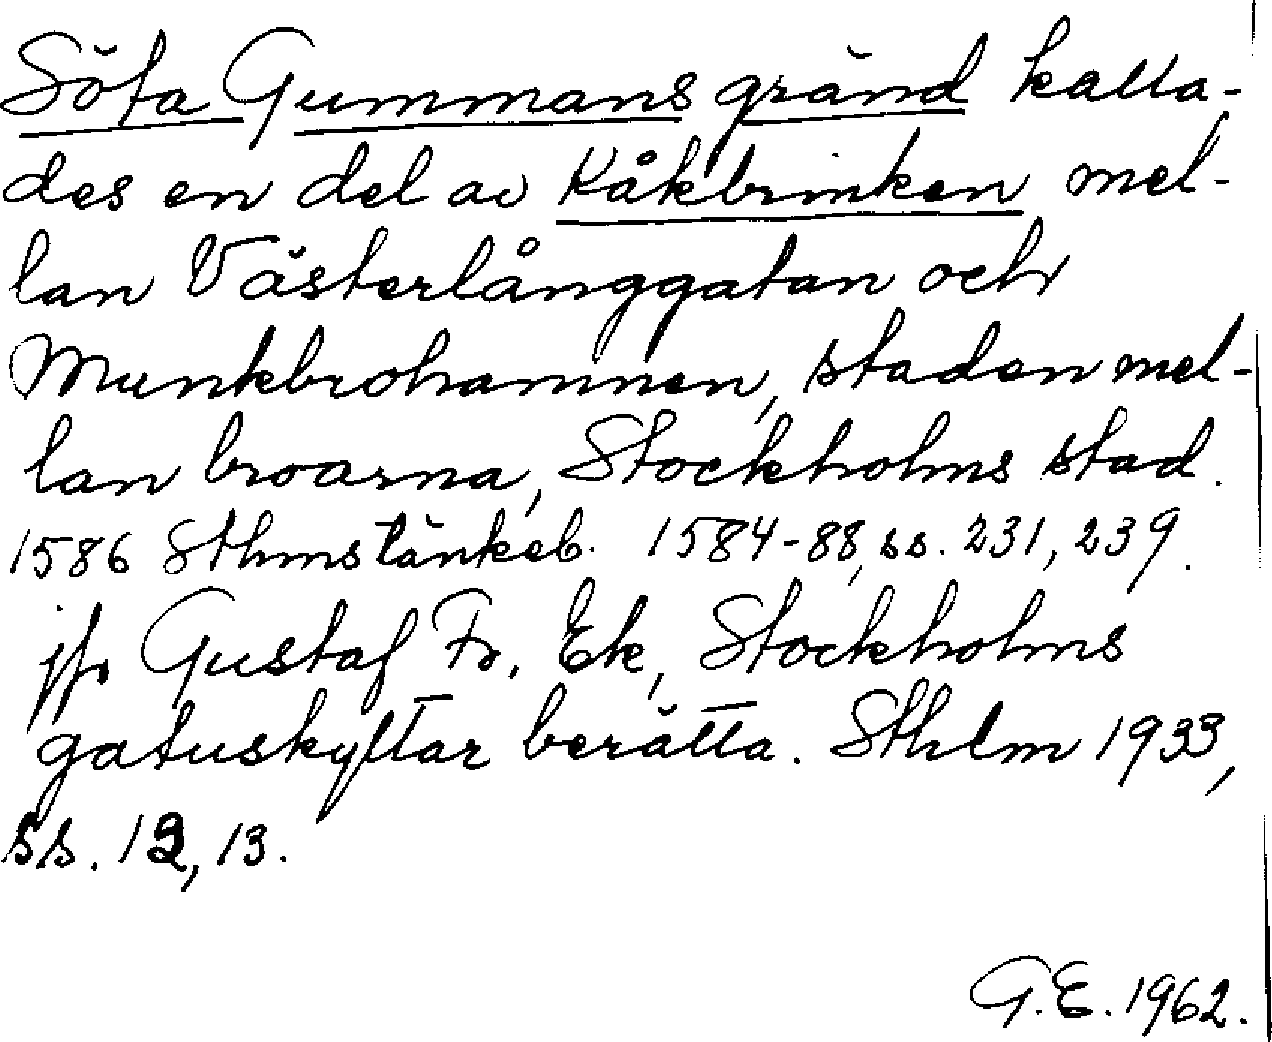 Söta Gummans gränd kalla-
des en del av Kåkbrinken mel-
lan Västerlånggatan och
Munkbrohamnen, staden mel-
lan broarna, Stockholms stad.
1586 Sthms tänkeb. 1584-88, ss. 231, 239.
jfr Gustaf Fr. Ek, Stockholms
gatuskyltar berätta. Sthlm 1933,
ss. 12, 13.
G.E. 1962.